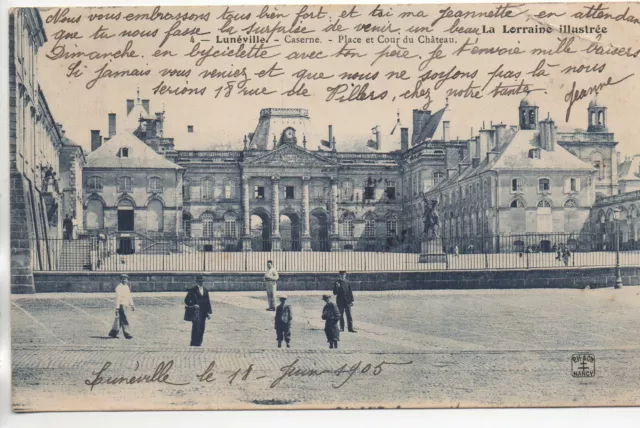 Nous vous embrassons tous bien et ta mie Jeannette en attendant
que tu nous fasse la surprise de venir un beau
La Lorraine illustrée
4 - Lunéville. - Caserne. - Place et Cour du Château.
Dimanche, en bicyclette avec ton père, Je t'envoie mille baisers
Si jamais vous veniez et que nous ne soyons pas là nous
serions 18 rue de Villers, chez notre tante
Jeanne
Lunéville le 18 - Juin 1905
NANCY